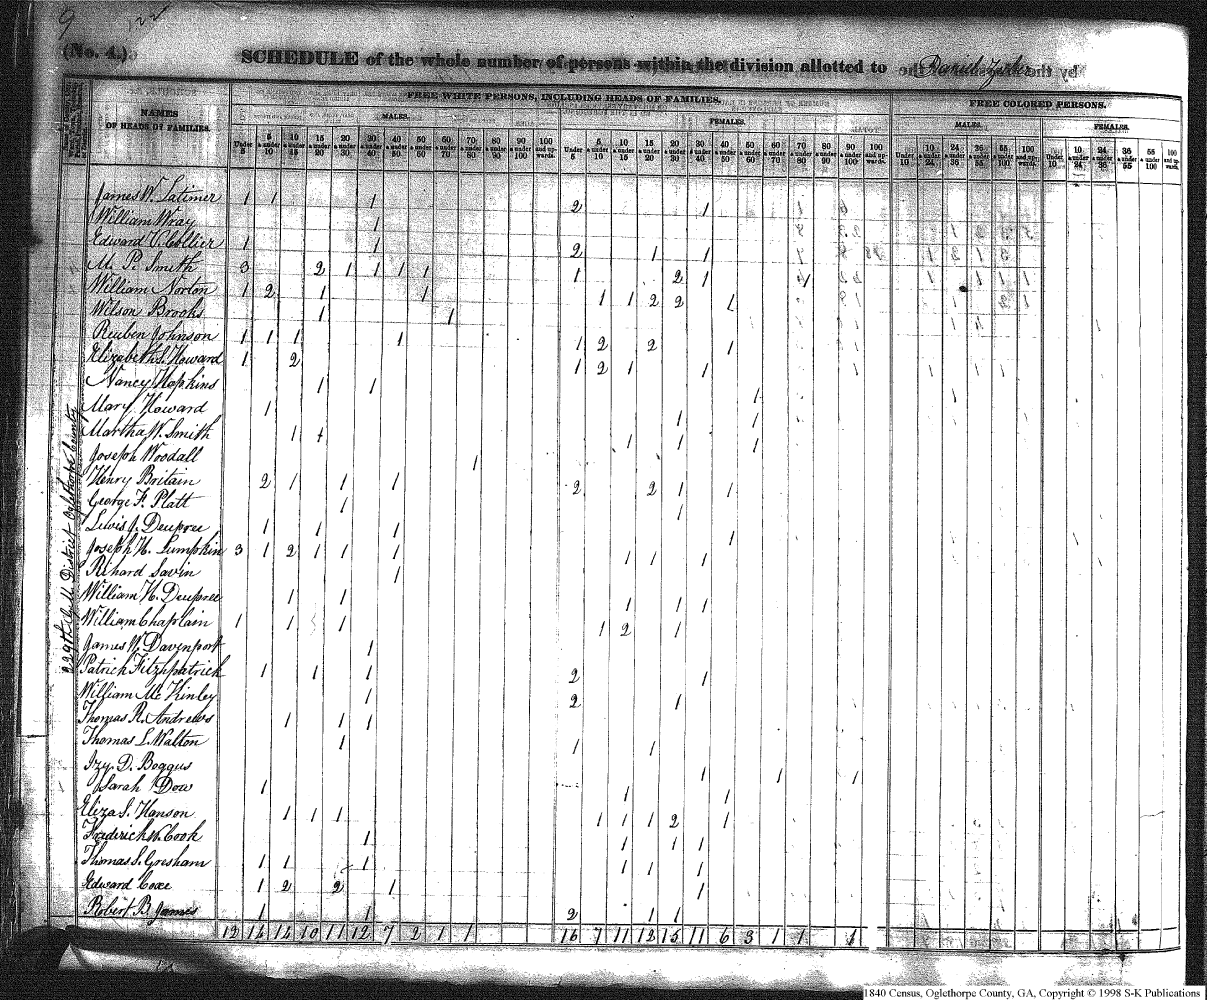 9 122
(No. 4.)
SCHEDULE of the whole number of persons within the division allotted to Daniel
FREE WHITE PERSONS, INCLUDING HEADS OF FAMILIES.
FREE COLORED PERSONS.
NAMES OF HEADS OF FAMILIES.
MALES. FEMALES. MALES. FEMALES.
Under 5 5 & under 10 10 & under 15 15 & under 20 20 & under 30 30 & under 40 40 & under 50 50 & under 60 60 & under 70 70 & under 80 80 & under 90 90 & under 100 100 and upwards.
Under 5 5 & under 10 10 & under 15 15 & under 20 20 & under 30 30 & under 40 40 & under 50 50 & under 60 60 & under 70 70 & under 80 80 & under 90 90 & under 100 100 and upwards.
Under 10 10 & under 24 24 & under 36 36 & under 55 55 & under 100 100 and upwards.
Under 10 10 & under 24 24 & under 36 36 & under 55 55 & under 100 100 and upwards.
229th G. M. District Oglethorpe County
James W. Latimer 1 1 1 2 1
William Wray 1
Edward V. Collier 1 1 2 1 1
M. P. Smith 3 2 1 1 1 1 1 2 1
William Norton 1 2 1 1 1 1 2 2 1
Wilson Brooks 1 1
Reuben Johnson 1 1 1 1 1 2 2 1
Elizabeth S. Howard 1 2 1 2 1 1
Nancy Hopkins 1 1 1
Mary Howard 1 1 1
Martha W. Smith 1 1 1 1 1
Joseph Woodall 1
Henry Britain 2 1 1 1 2 2 1 1
George F. Platt 1 1
Lewis J. Deupree 1 1 1 1
Joseph H. Lumpkin 3 1 2 1 1 1 1 1 1
Rihard Savin 1
William H. Deupree 1 1 1 1 1
William Chaplain 1 1 1 1 2 1
James W. Davenport 1
Patrick Fitzhpatrick 1 1 1 2 1
William Mc Kinley 1 2 1
Thomas R. Andrews 1 1 1
Thomas L. Walton 1 1 1
Izy D. Boggus 1 1 1
Sarah Dow 1 1 1
Eliza S. Hanson 1 1 1 1 1 1 2 1
Frederick W. Cook 1 1 1 1
Thomas S. Gresham 1 1 1 1 1 1
Edward Coxe 1 2 2 1 1
Robert B. James 1 1 2 1 1
13 14 14 10 11 12 7 2 1 1 16 7 11 12 15 11 6 3 1 1 1
1840 Census, Oglethorpe County, GA, Copyright © 1998 S-K Publications